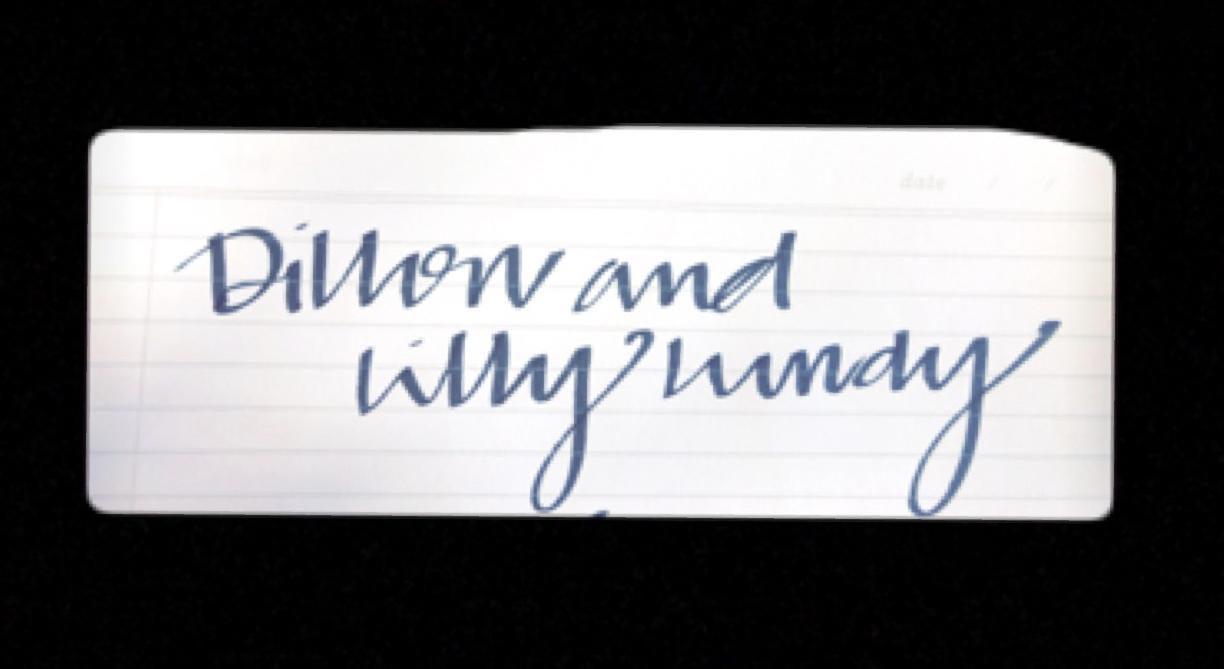 date / /
Dillon and
Lilly Lundy